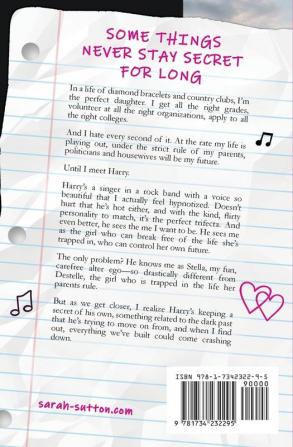 SOME THINGS
NEVER STAY SECRET
FOR LONG
In a life of diamond bracelets and country clubs, I'm
the perfect daughter. I get all the right grades,
volunteer at all the right organizations, apply to all
the right colleges.
And I hate every second of it. At the rate my life is
playing out, under the strict rule of my parents,
politicians and housewives will be my future.
Until I meet Harry.
Harry's a singer in a rock band with a voice so
beautiful that I actually feel hypnotized. Doesn't
hurt that he's hot either, and with the kind, flirty
personality to match, it's the perfect trifecta. And
even better, he sees the me I want to be. He sees me
as the girl who can break free of the life she's
trapped in, who can control her own future.
The only problem? He knows me as Stella, my fun,
carefree alter ego—so drastically different from
Destelle, the girl who is trapped in the life her
parents rule.
But as we get closer, I realize Harry's keeping a
secret of his own, something related to the dark past
that he's trying to move on from, and when I find
out, everything we've built could come crashing
down.
ISBN 978-1-7342322-9-5
90000
9 781734 232295
sarah-sutton.com